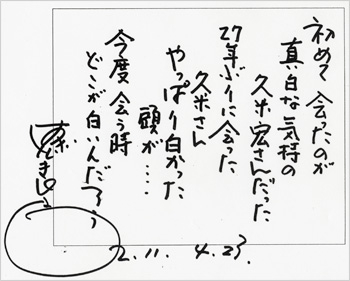 初めて会ったのが
真白な気持の
久米宏さんだった
27年ぶりに会った
久米さん
やっぱり白かった
頭が……
今度会う時
どこが白いんだろう
2.11. 4.23.